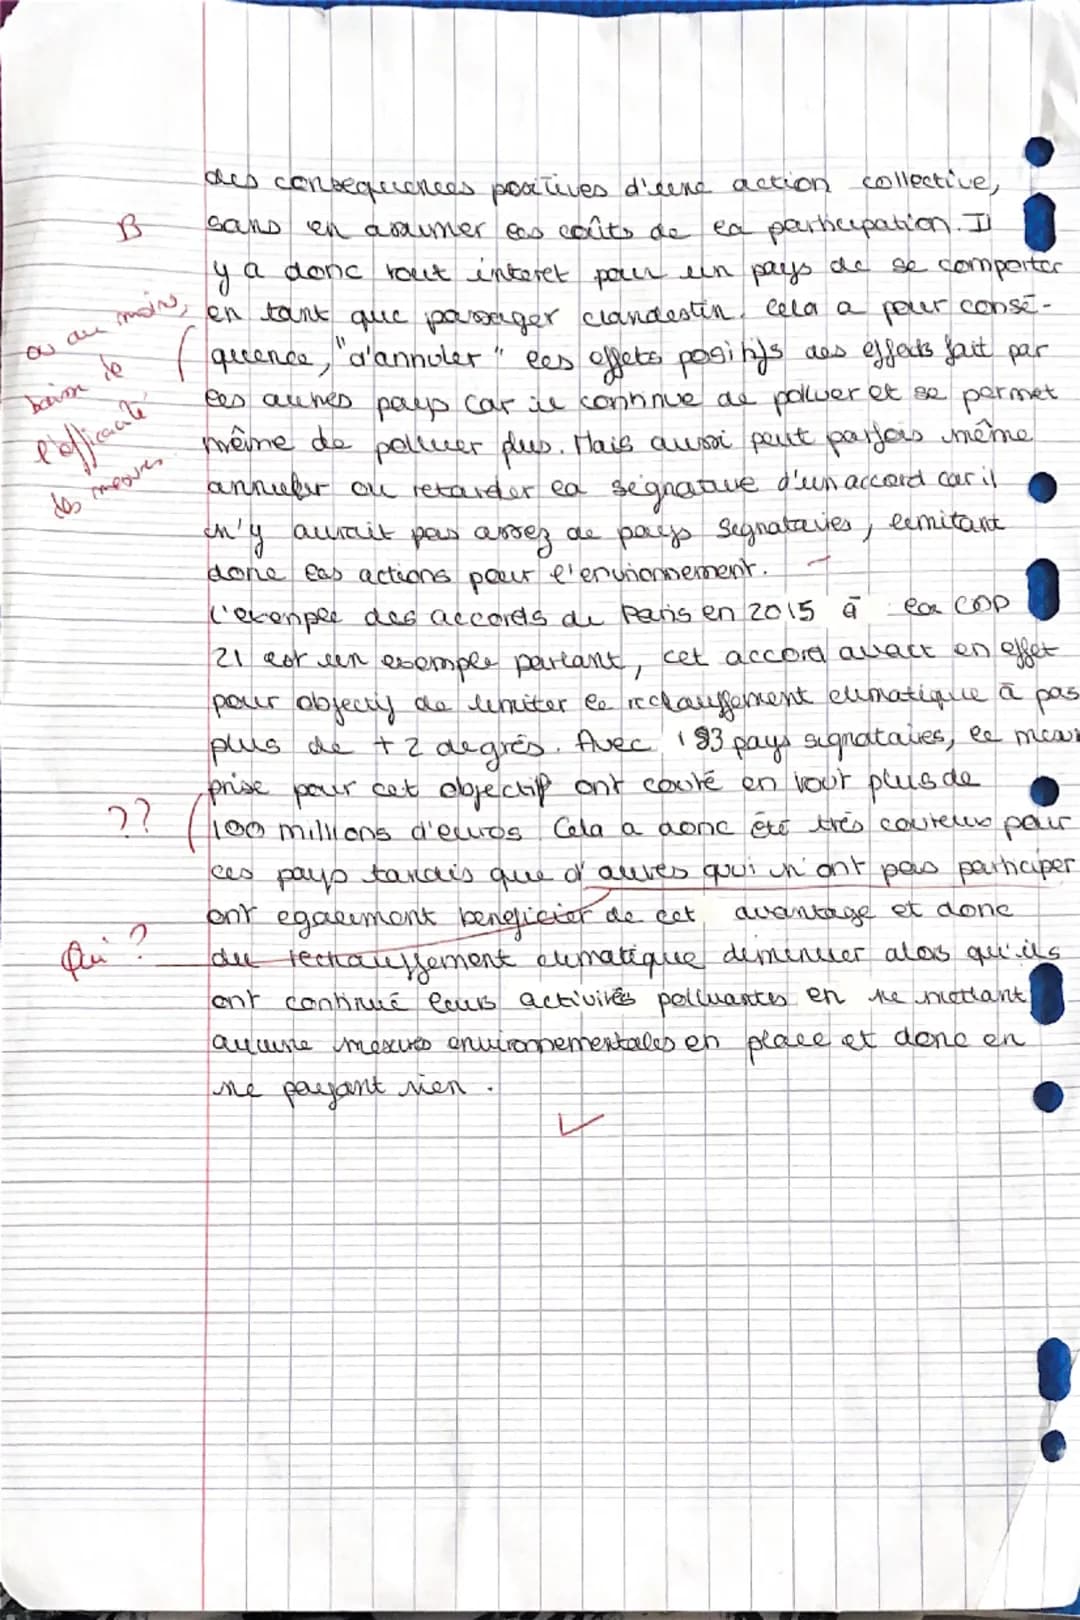 des consequences positives d'une action collective,
B
sans en assumer les coûts de la participation. Il
y a donc tout interet pour un pays de se comporter
ou au moins,
en tant que passager clandestin. Cela a pour consé-
baisse de
quence, "d'annuler" les effets positifs des efforts fait par
l'efficacité
les autres pays car il continue de polluer et se permet
des mesures
même de polluer plus. Mais aussi peut parfois même
annuler ou retarder la signature d'un accord car il
n'y aurait pas assez de pays signataires, limitant
donc les actions pour l'environnement.
L'exemple des accords de Paris en 2015 à la COP
21 est un exemple parlant, cet accord avait en effet
pour objectif de limiter le rechauffement climatique à pas
plus de +2 degrés. Avec 183 pays signataires, le
prise pour cet objectif ont couté en tout plus de
??
100 millions d'euros Cela a donc été très couteux pour
ces pays tandis que d'autres qui n'ont pas participer
ont egalement beneficier de cet avantage et donc
Qui ?
du rechauffement climatique diminuer alors qu'ils
ont continué leurs activités polluantes en ne mettant
aucune mesures environnementales en place et donc en
ne payant rien.